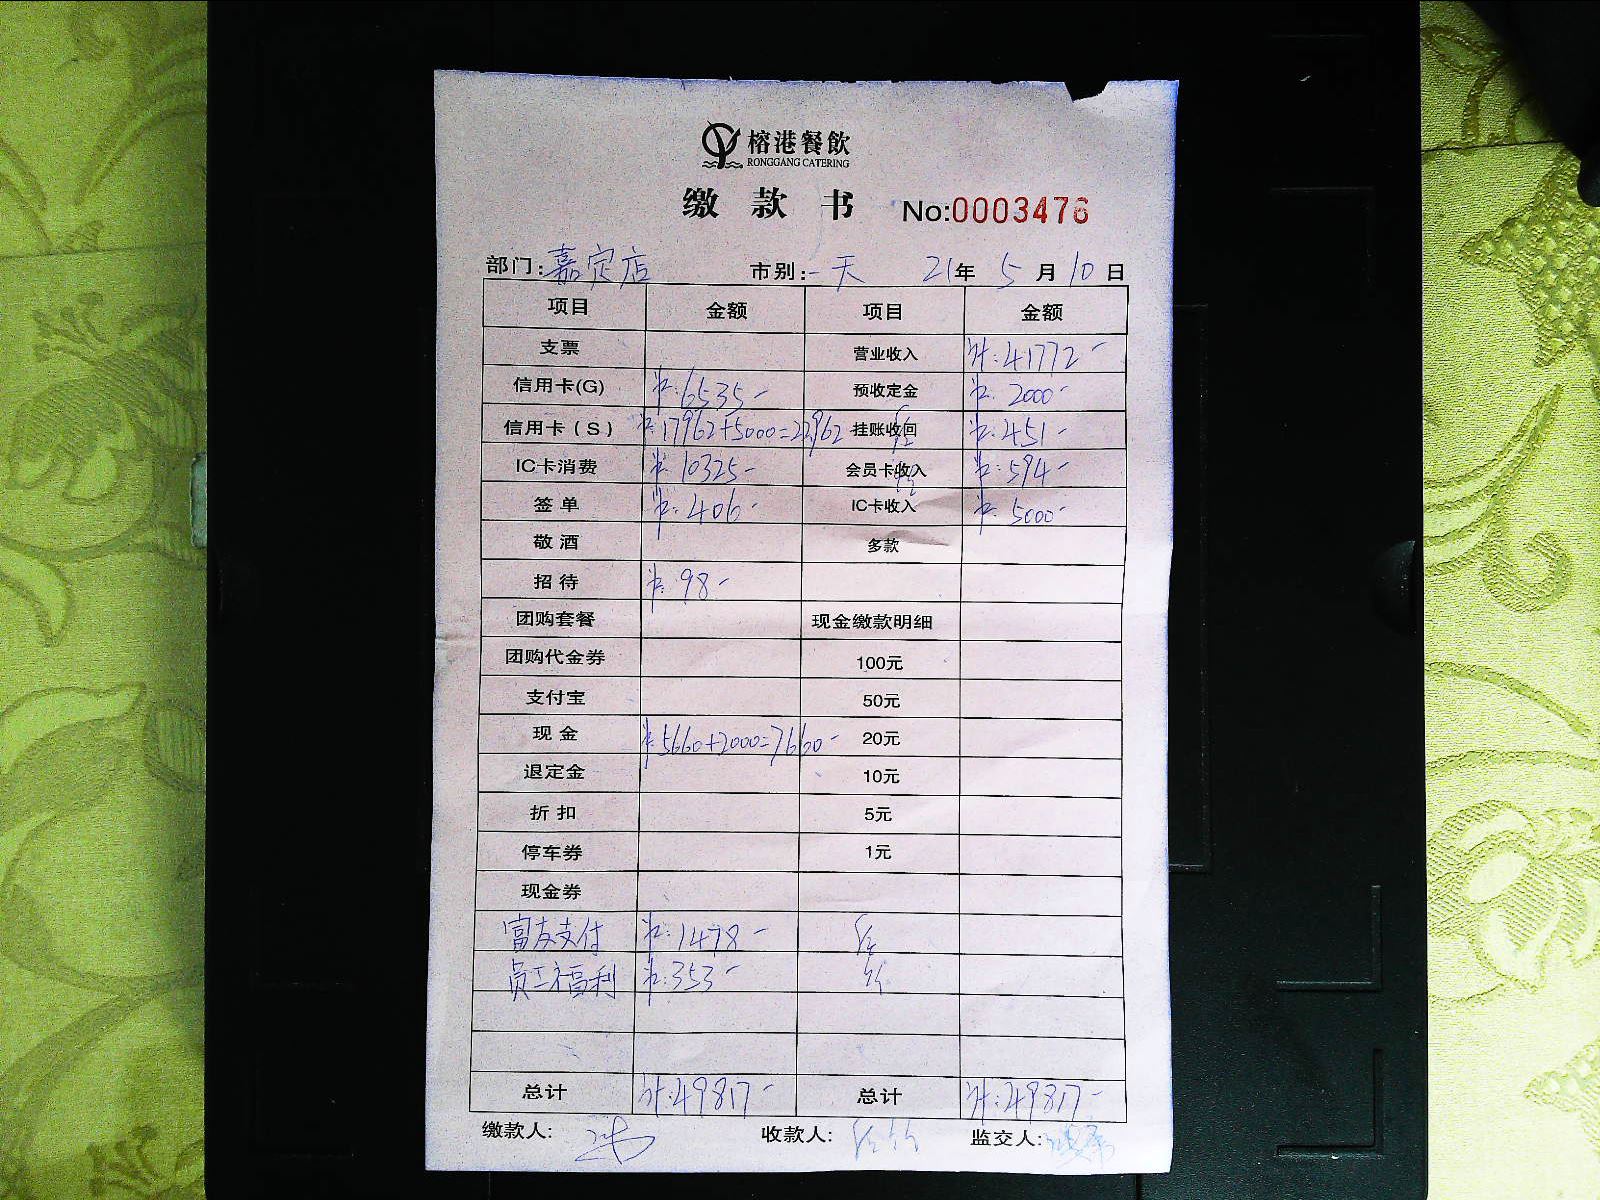 榕港餐飲
RONGGANG CATERING
缴款书 No:0003476
部门:嘉定店 市别:一天 21年5月10日
项目 金额 项目 金额
支票 营业收入 计:41772-
信用卡(G) 6535- 预收定金 2000-
信用卡(S) 17962+5000=22962 挂账收回 451-
IC卡消费 10325- 会员卡收入 594-
签单 406- IC卡收入 5000-
敬酒 多款
招待 98-
团购套餐 现金缴款明细
团购代金券 100元
支付宝 50元
现金 5660+2000=7660- 20元
退定金 10元
折扣 5元
停车券 1元
现金券
富友支付 1478-
员工福利 353-
总计 计:49817- 总计 计:49817-
缴款人: 收款人: 监交人: